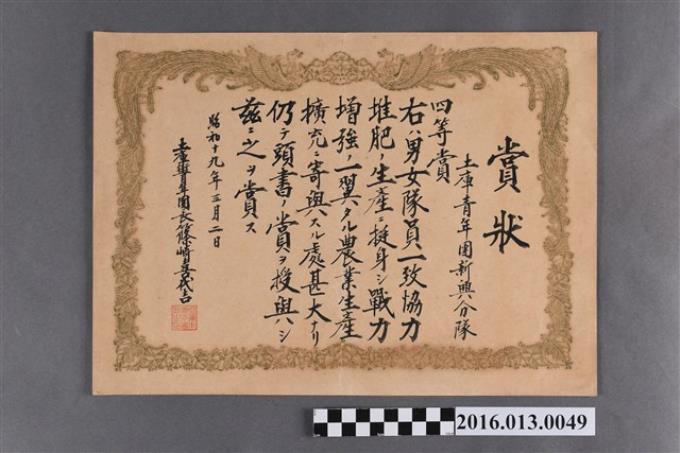 賞狀
土庫青年團新興分隊
四等賞
右ハ男女隊員一致協力
堆肥ノ生產ニ挺身シ戰力
增強ノ一翼タル農業生產
擴充ニ寄與スル處甚大ナリ
仍テ頭書ノ賞ヲ授與ハシ
茲ニ之ヲ賞ス
昭和十九年三月二日
土庫青年團長篠崎喜代吉
2016.013.0049